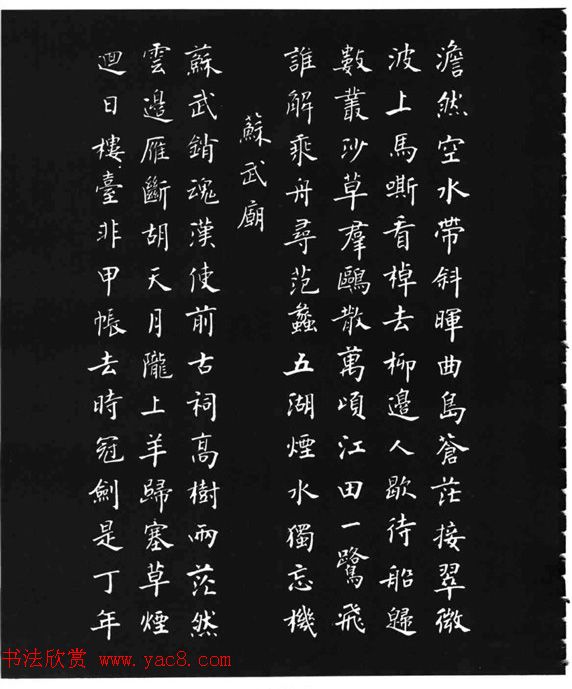 澹然空水帶斜暉曲島蒼茫接翠微
波上馬嘶看棹去柳邊人歇待船歸
數叢沙草羣鷗散萬頃江田一鷺飛
誰解乘舟尋范蠡五湖煙水獨忘機
蘇武廟
蘇武銷魂漢使前古祠高樹兩茫然
雲邊雁斷胡天月隴上羊歸塞草煙
迴日樓臺非甲帳去時冠劍是丁年
书法欣赏 www.yac8.com